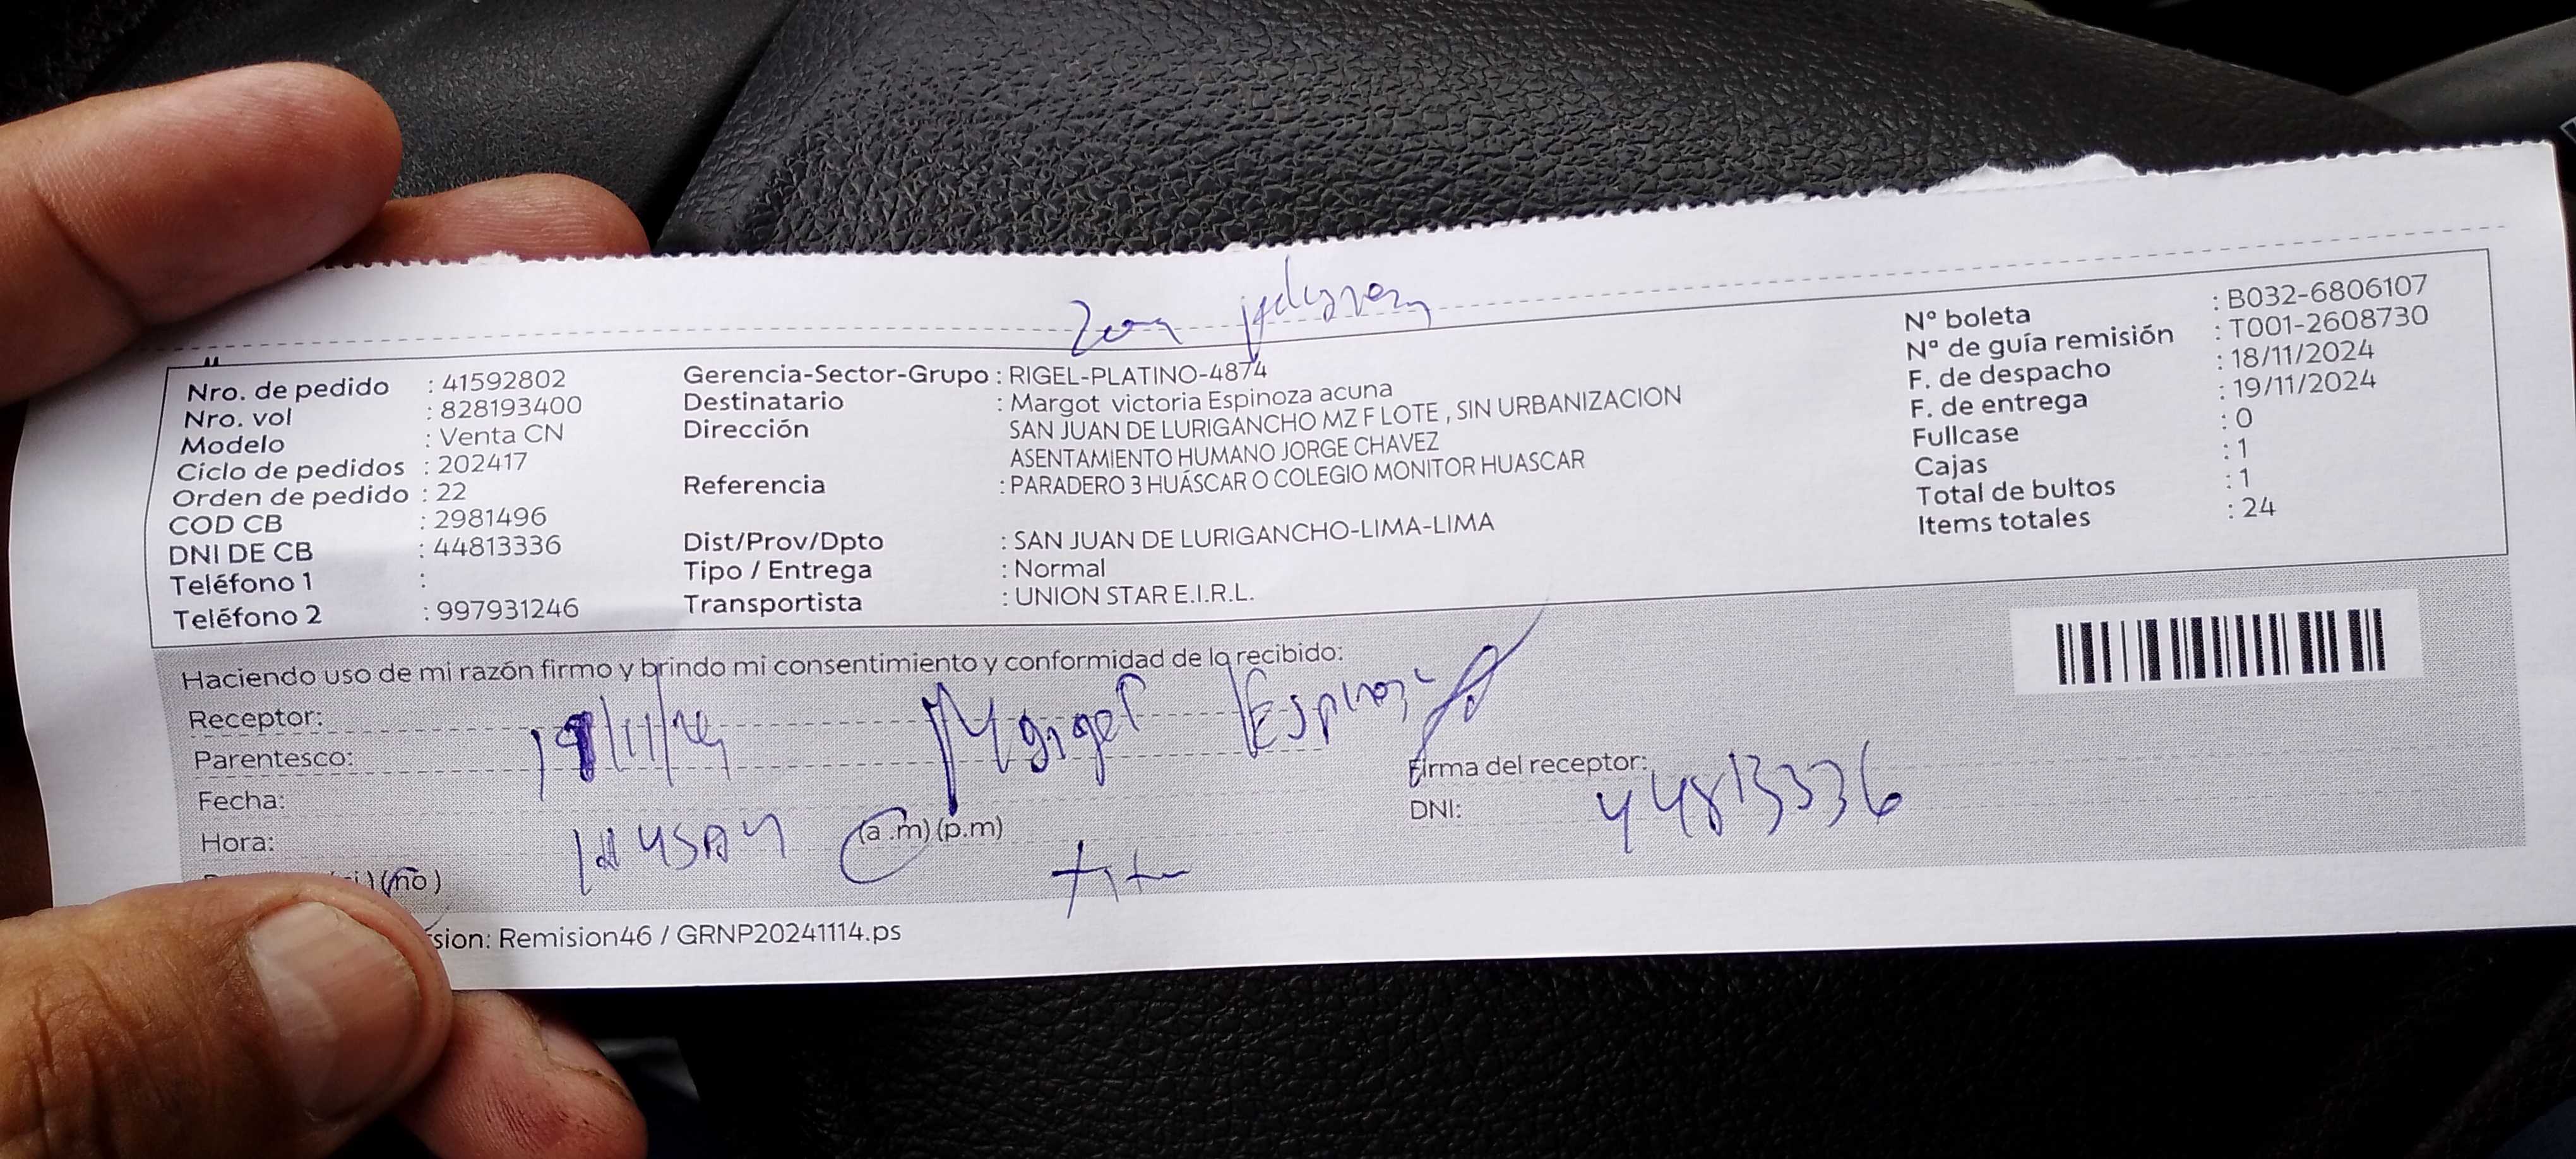 Nro. de pedido : 41592802
Nro. vol : 828193400
Modelo : Venta CN
Ciclo de pedidos : 202417
Orden de pedido : 22
COD CB : 2981496
DNI DE CB : 44813336
Teléfono 1 :
Teléfono 2 : 997931246
Gerencia-Sector-Grupo : RIGEL-PLATINO-4874
Destinatario : Margot victoria Espinoza acuna
Dirección SAN JUAN DE LURIGANCHO MZ F LOTE , SIN URBANIZACION
ASENTAMIENTO HUMANO JORGE CHAVEZ
Referencia : PARADERO 3 HUÁSCAR O COLEGIO MONITOR HUASCAR
Dist/Prov/Dpto : SAN JUAN DE LURIGANCHO-LIMA-LIMA
Tipo / Entrega : Normal
Transportista : UNION STAR E.I.R.L.
N° boleta : B032-6806107
N° de guía remisión : T001-2608730
F. de despacho : 18/11/2024
F. de entrega : 19/11/2024
Fullcase : 0
Cajas : 1
Total de bultos : 1
Items totales : 24
Haciendo uso de mi razón firmo y brindo mi consentimiento y conformidad de lo recibido:
Receptor:
Parentesco: 19/11/24 Espinoza
Fecha:
Firma del receptor:
Hora: (a .m) (p.m)
DNI: 44813336
(no)
sion: Remision46 / GRNP20241114.ps